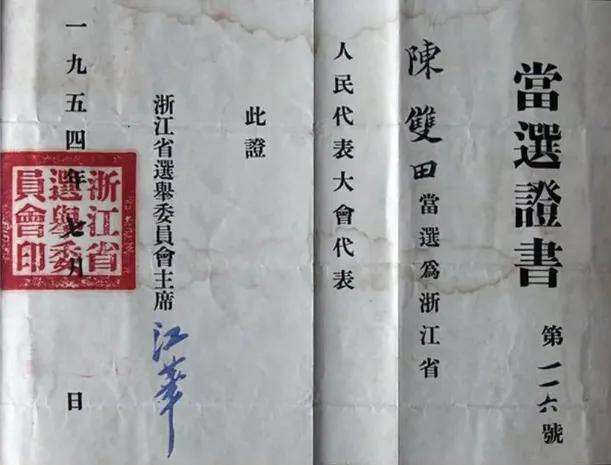 當選證書
第一一六號
陳雙田當選爲浙江省
人民代表大會代表
此證
浙江省選舉委員會主席
江華
一九五四年七月 日
浙江省
選舉委
員會印